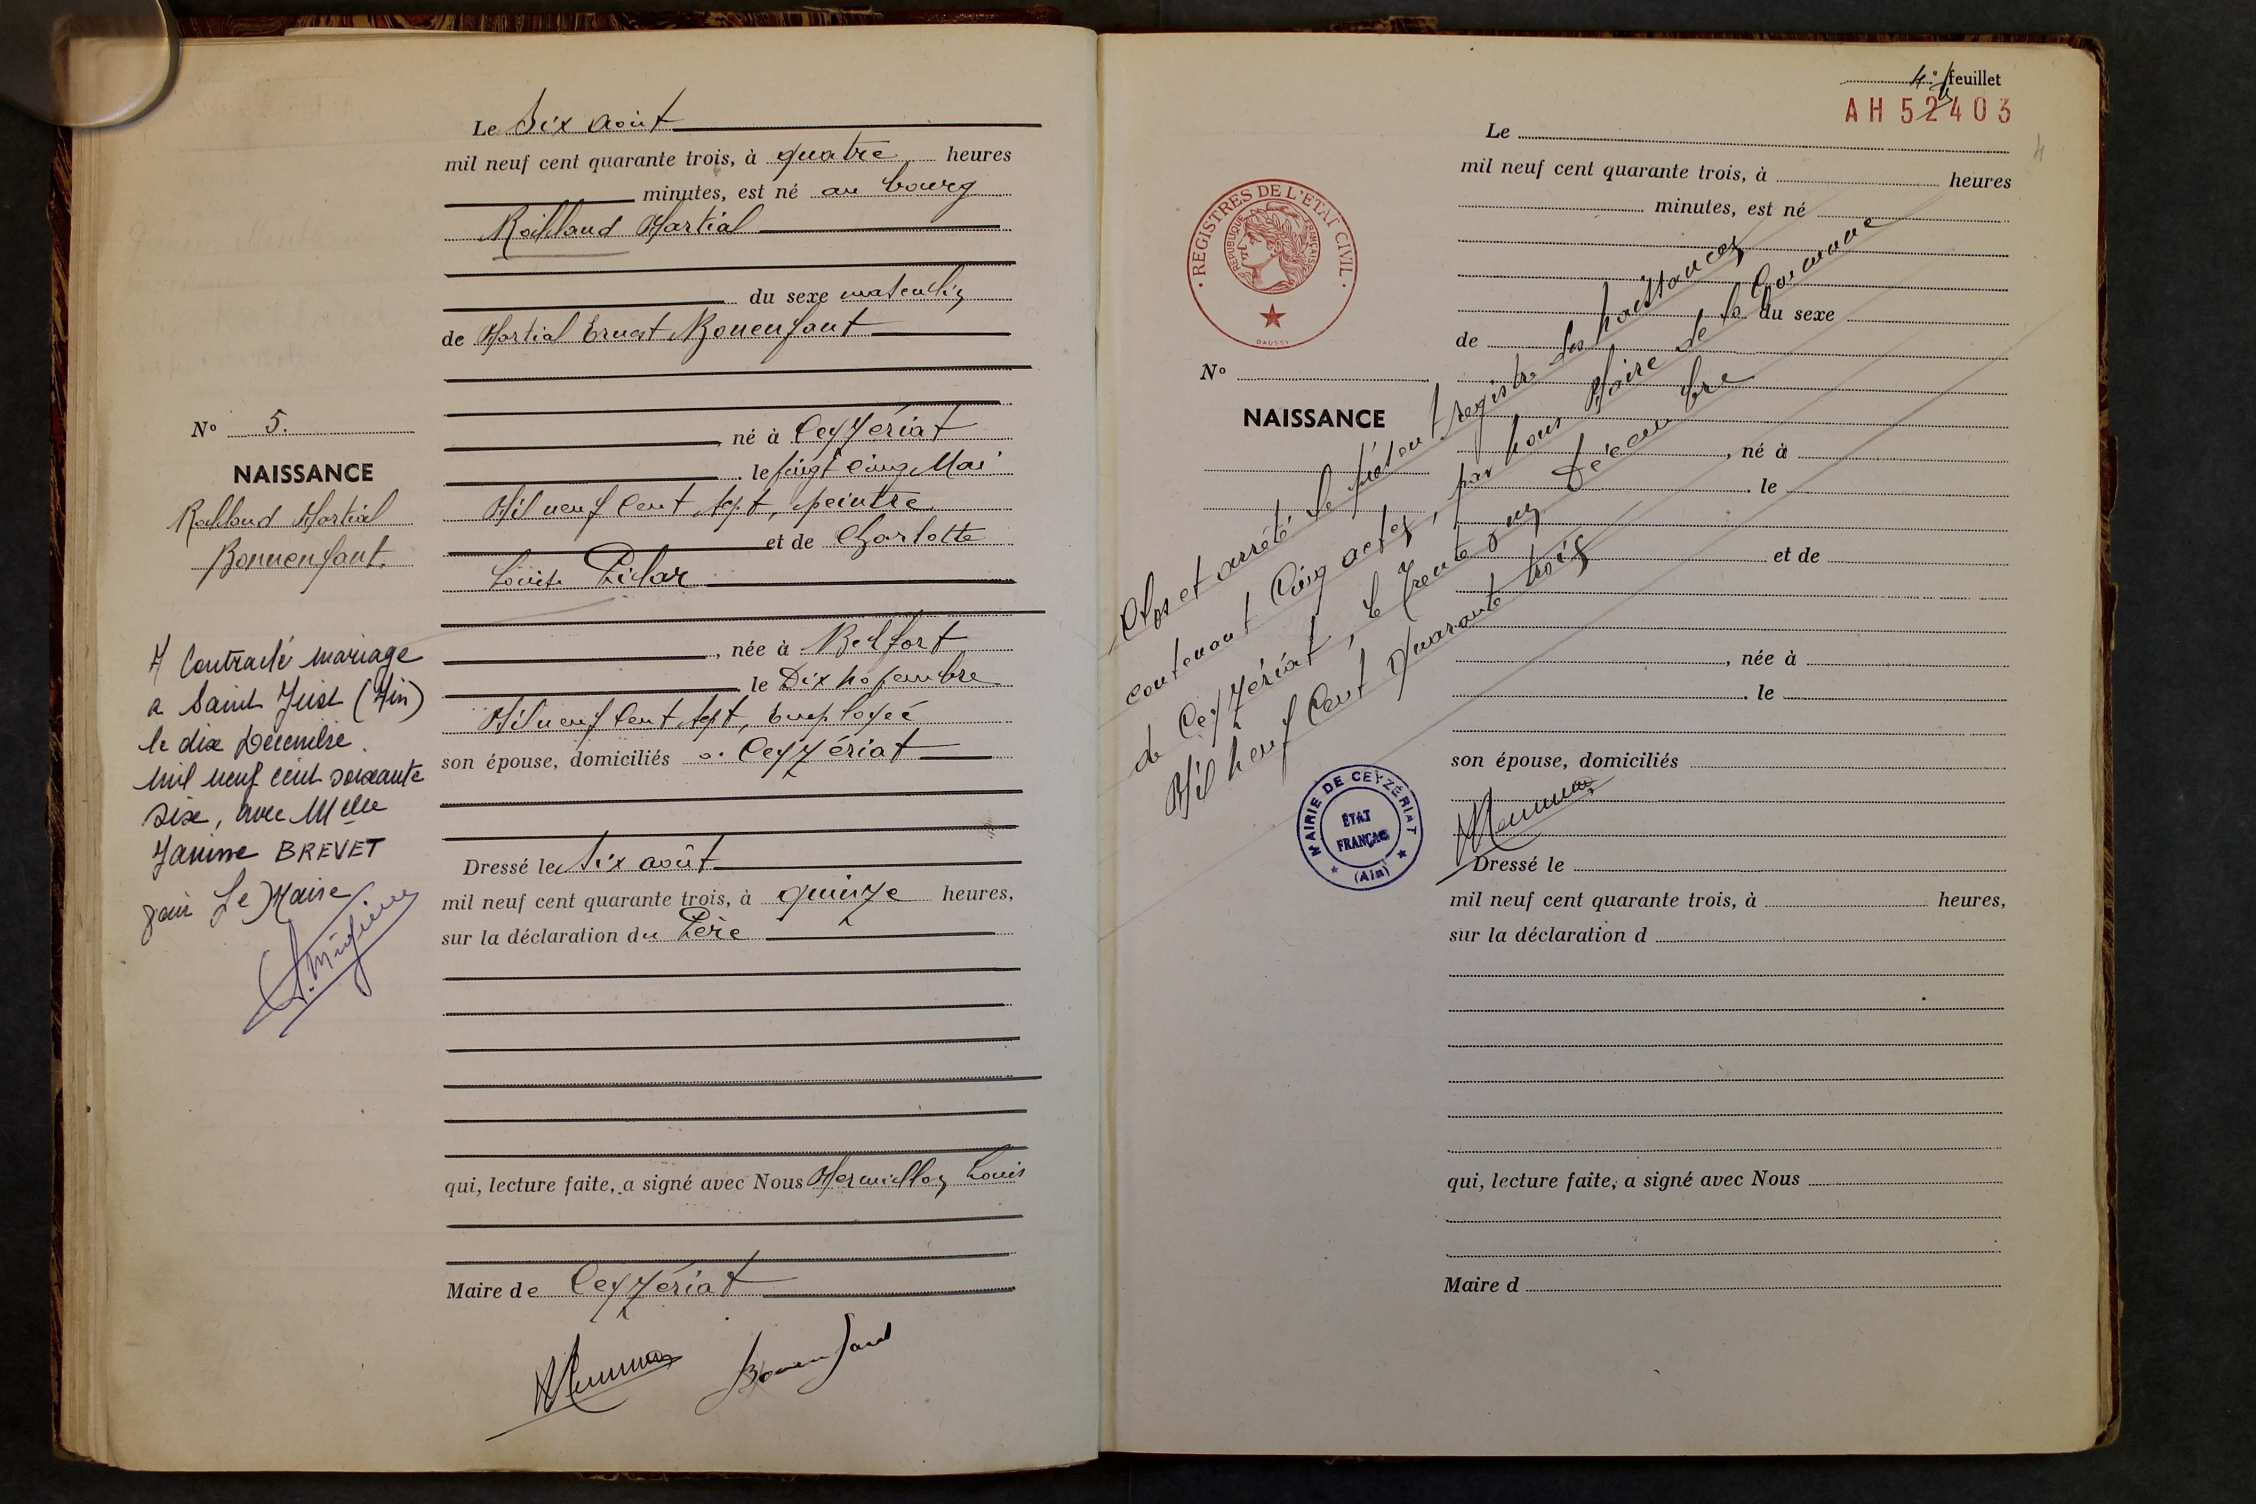 Le Six août
mil neuf cent quarante trois, à quatre heures
minutes, est né au bourg
Martial
du sexe masculin
de Martial Ernest Bonenfant
né à Ceyzériat
le vingt cinq Mai
Mil neuf cent sept, peintre
et de Charlotte
Louise Pidar
née à Belfort
le Dix novembre
Mil neuf cent sept, Employée
son épouse, domiciliés à Ceyzériat
Dressé le Six août
mil neuf cent quarante trois, à quinze heures,
sur la déclaration du Père
qui, lecture faite, a signé avec Nous Mermillon Louis
Maire de Ceyzériat
Bonenfant
N° 5.
NAISSANCE
Martial
Bonnenfant.
A Contracté mariage
a Saint Just (Ain)
le dix Décembre
mil neuf cent soixante
six, avec Melle
Janine BREVET
pour Le Maire
4e feuillet
AH 52403
4
REGISTRES DE L'ETAT CIVIL
REPUBLIQUE FRANÇAISE
DAUSSY
N°
NAISSANCE
Le
mil neuf cent quarante trois, à heures
minutes, est né
du sexe
de
, né à
le
et de
, née à
le
son épouse, domiciliés
Dressé le
mil neuf cent quarante trois, à heures,
sur la déclaration d
qui, lecture faite, a signé avec Nous
Maire d
Clos et arrêté le présent registre des naissances
contenant Cinq actes, par nous Maire de la Commune
de Ceyzériat, le Trente un Décembre
Mil neuf Cent Quarante trois
MAIRIE DE CEYZÉRIAT
ÉTAT
FRANÇAIS
(Ain)